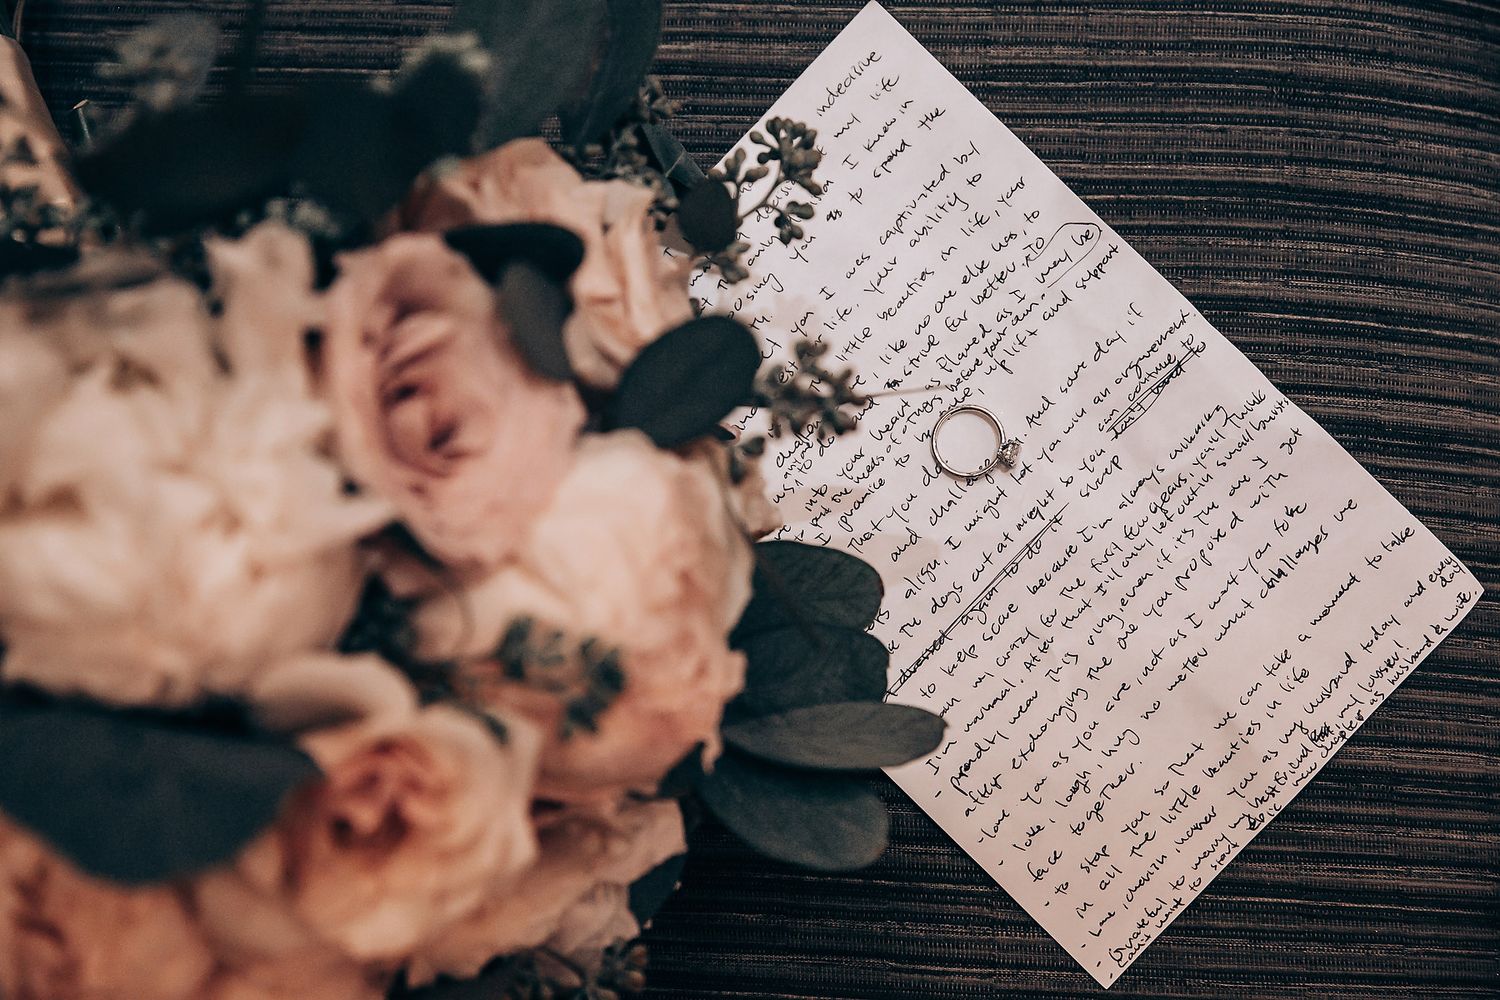 indecisive
my life
decisi
only I knew in
osing you as to spend the
ty.
y you I was captivated by
est life. Your ability to
little beauties in life, your
like no one else has, to
anyone
us to do and strive for better. To
into your heart as flawed as I may be
to put the needs of others before your own.
I promise to be uplift and support
that you do
and challenge And same day if
align, I might let you win an argument
the days out at night so you can continue to
again to do it sleep
to keep score because I'm always winning
on my crazy for the first few years, you'll think
I'm normal. After that I'll only let out in small bursts
- proudly wear this ring, even if it's the one I
after exchanging the one you proposed with
- love you as you are, not as I want you to be
- love, laugh, hug no matter what challenges we
face together.
- to stop you so that we can take a moment to take
in all the little beauties in life
- Love, cherish, honor you as my husband today and every day
- Grateful to marry my best friend my lobster!
- Can't wait to start new chapter as husband & wife.